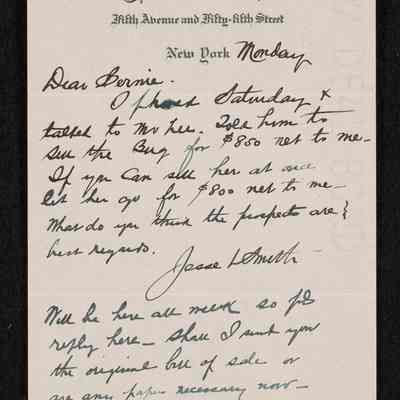 Fifth Avenue and Fifty-fifth Street
New York Monday
Dear Bernie.
I phoned Saturday &
talked to Mr Lee. Told him to
sell the Bug for $850 net to me—
If you can sell her at once
let her go for $800 net to me—
What do you think the prospects are?
best regards.
Jesse L Smith
Will be here all week so pls
reply here— shall I send you
the original bill of sale or
are any papers necessary now—